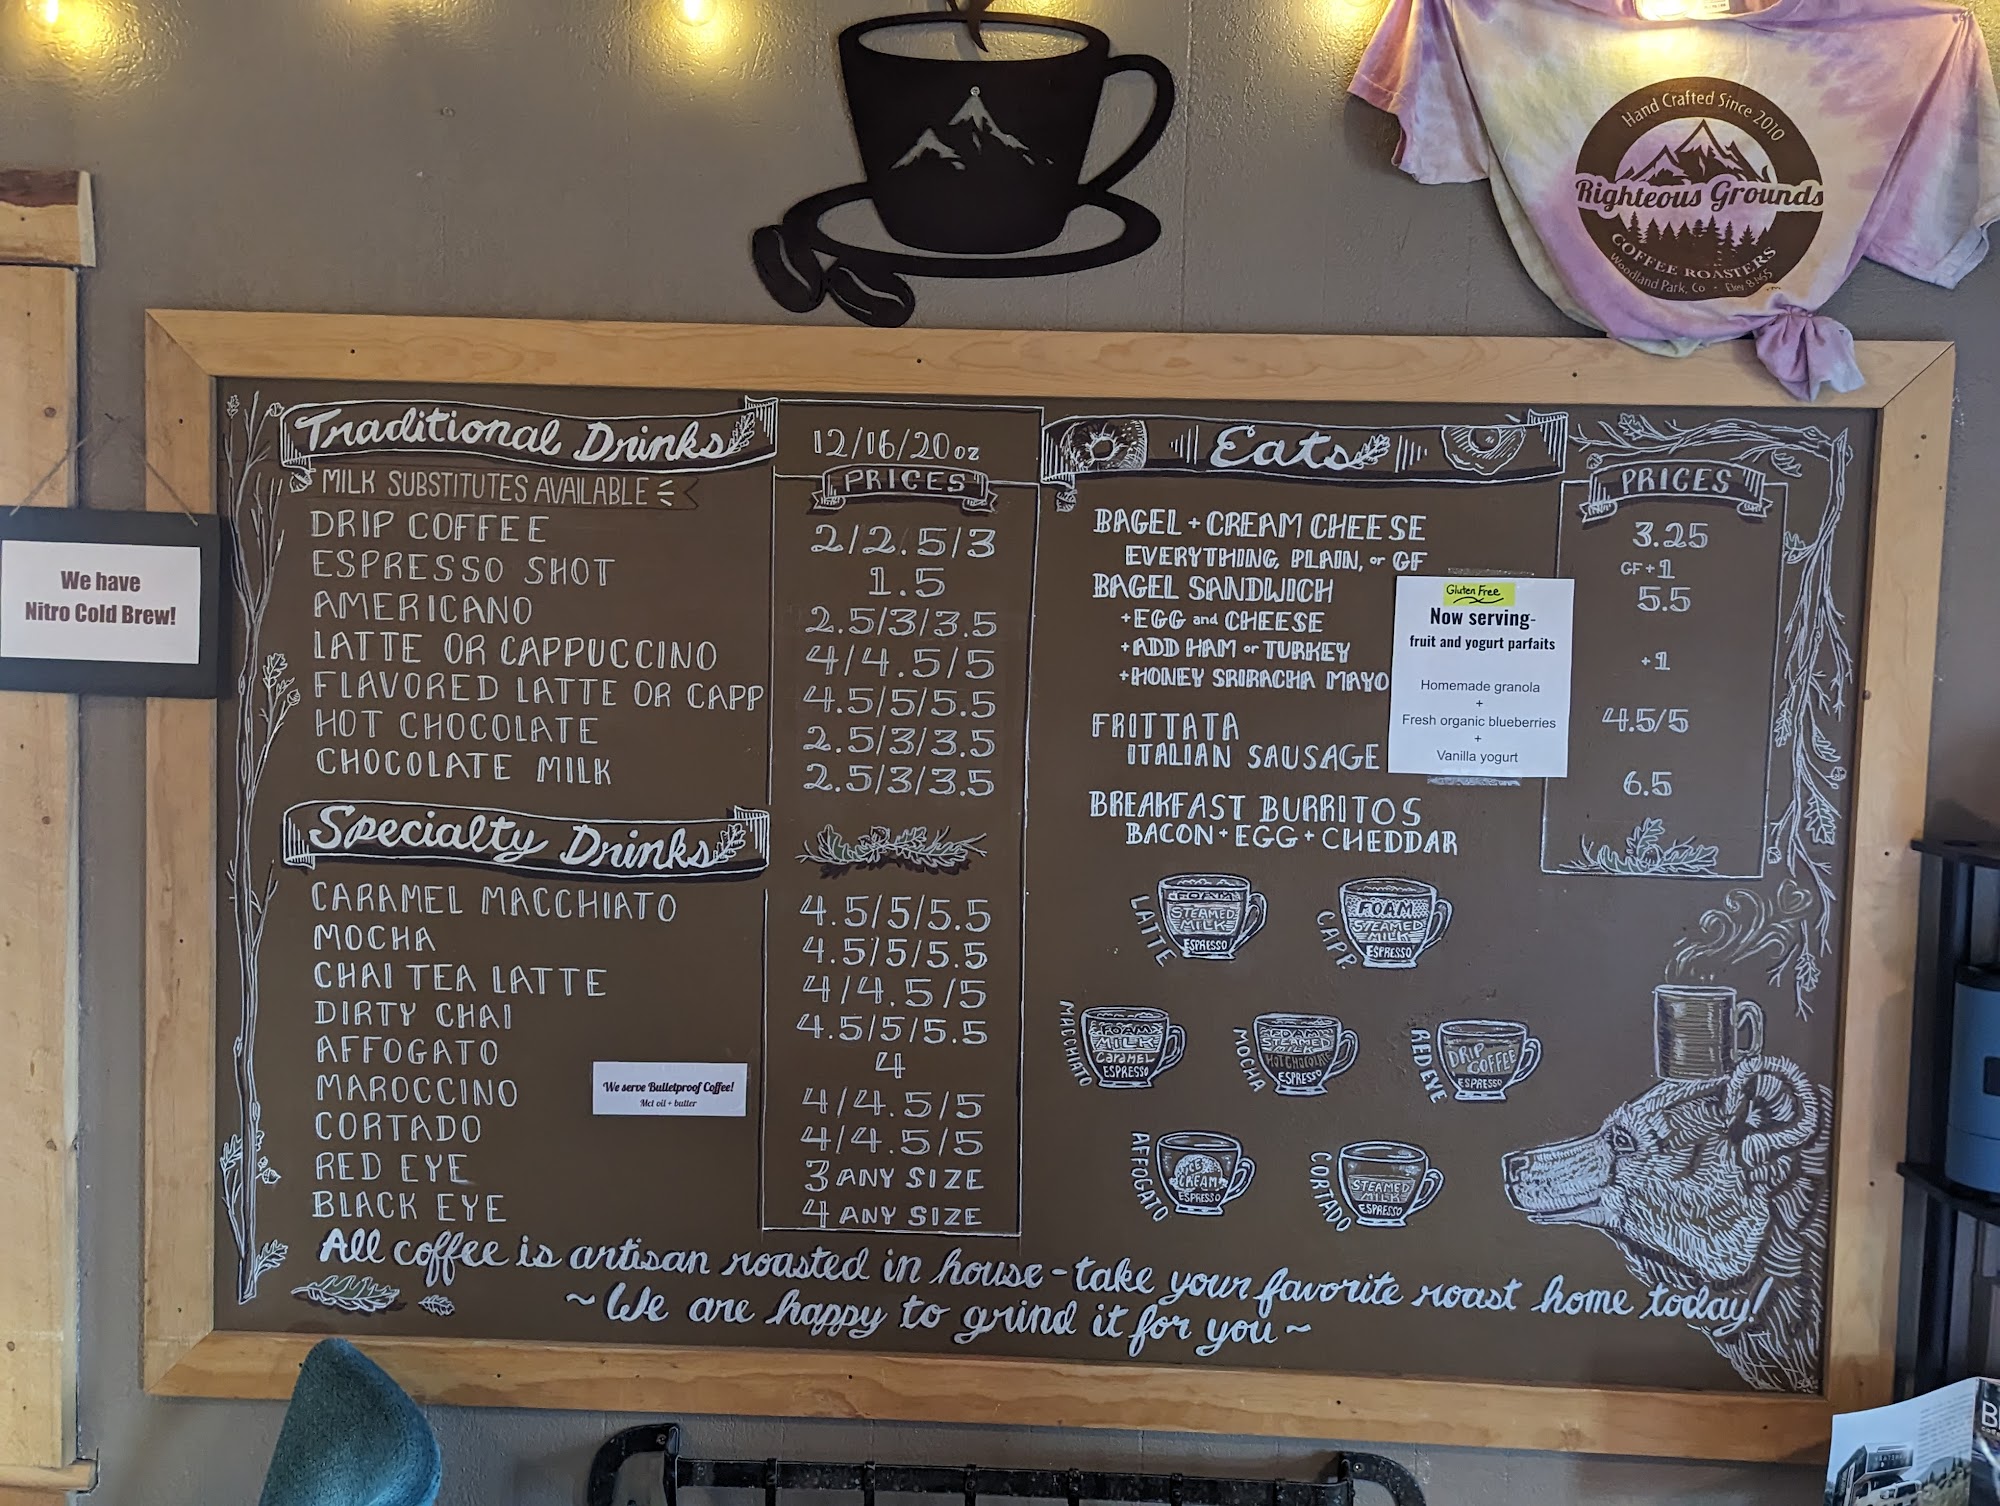 Hand Crafted Since 2010
Righteous Grounds
COFFEE ROASTERS
Woodland Park, Co • Elev. 8,465
We have
Nitro Cold Brew!
Traditional Drinks
12/16/20oz
MILK SUBSTITUTES AVAILABLE
PRICES
DRIP COFFEE 2/2.5/3
ESPRESSO SHOT 1.5
AMERICANO 2.5/3/3.5
LATTE OR CAPPUCCINO 4/4.5/5
FLAVORED LATTE OR CAPP 4.5/5/5.5
HOT CHOCOLATE 2.5/3/3.5
CHOCOLATE MILK 2.5/3/3.5
Specialty Drinks
CARAMEL MACCHIATO 4.5/5/5.5
MOCHA 4.5/5/5.5
CHAI TEA LATTE 4/4.5/5
DIRTY CHAI 4.5/5/5.5
AFFOGATO 4
MAROCCINO 4/4.5/5
CORTADO 4/4.5/5
RED EYE 3 ANY SIZE
BLACK EYE 4 ANY SIZE
We serve Bulletproof Coffee!
Mct oil + butter
Eats
PRICES
BAGEL + CREAM CHEESE 3.25
EVERYTHING, PLAIN, or GF GF+1
BAGEL SANDWICH 5.5
+EGG and CHEESE
+ADD HAM or TURKEY +1
+HONEY SRIRACHA MAYO
FRITTATA 4.5/5
ITALIAN SAUSAGE
BREAKFAST BURRITOS 6.5
BACON + EGG + CHEDDAR
Gluten Free
Now serving-
fruit and yogurt parfaits
Homemade granola
+
Fresh organic blueberries
+
Vanilla yogurt
LATTE
FOAM
STEAMED
MILK
ESPRESSO
CAPP.
FOAM
STEAMED
MILK
ESPRESSO
MACCHIATO
FOAM
MILK
CARAMEL
ESPRESSO
MOCHA
STEAMED
MILK
HOT CHOCOLATE
ESPRESSO
RED EYE
DRIP
COFFEE
ESPRESSO
AFFOGATO
ICE
CREAM
ESPRESSO
CORTADO
STEAMED
MILK
ESPRESSO
All coffee is artisan roasted in house - take your favorite roast home today!
~ We are happy to grind it for you ~